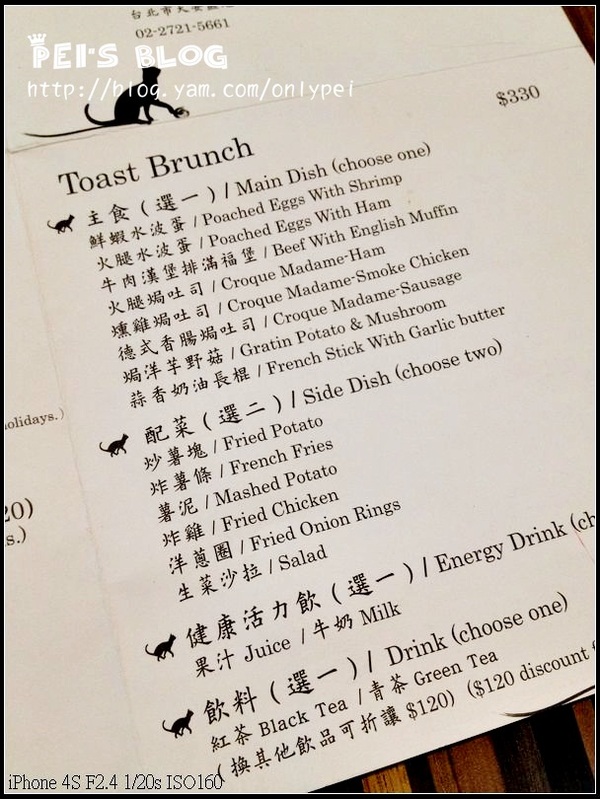 台北市大安區
02-2721-5661
PEI'S BLOG
http://blog.yam.com/onlypei
$330
Toast Brunch
主食(選一)/ Main Dish (choose one)
鮮蝦水波蛋 / Poached Eggs With Shrimp
火腿水波蛋 / Poached Eggs With Ham
牛肉漢堡排滿福堡 / Beef With English Muffin
火腿焗吐司 / Croque Madame-Ham
燻雞焗吐司 / Croque Madame-Smoke Chicken
德式香腸焗吐司 / Croque Madame-Sausage
焗洋芋野菇 / Gratin Potato & Mushroom
蒜香奶油長棍 / French Stick With Garlic butter
olidays.)
配菜(選二)/ Side Dish (choose two)
炒薯塊 / Fried Potato
炸薯條 / French Fries
薯泥 / Mashed Potato
炸雞 / Fried Chicken
洋蔥圈 / Fried Onion Rings
生菜沙拉 / Salad
20)
s.)
健康活力飲(選一)/ Energy Drink (ch
果汁 Juice / 牛奶 Milk
飲料(選一)/ Drink (choose one)
紅茶 Black Tea / 青茶 Green Tea
(換其他飲品可折讓 $120) ($120 discount f
iPhone 4S F2.4 1/20s ISO160